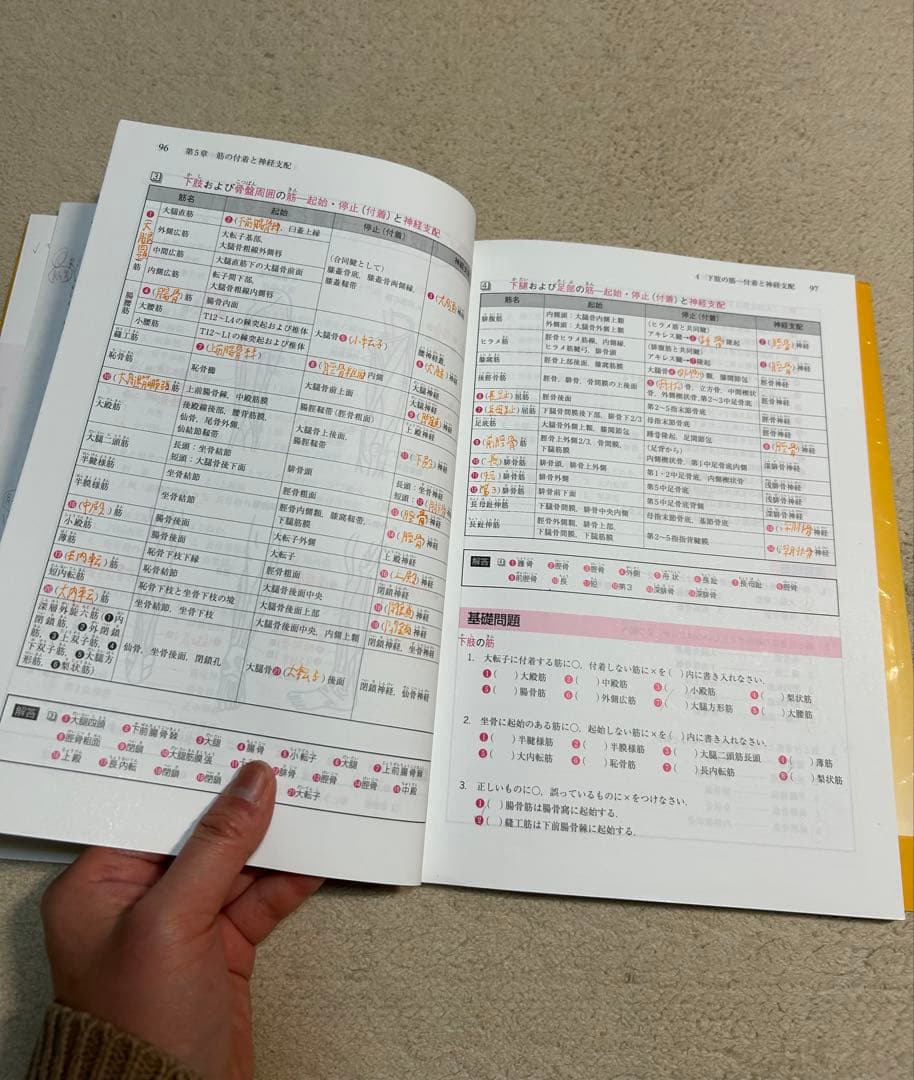 96 第5章 筋の付着と神経支配
3 下肢および骨盤周囲の筋―起始・停止(付着)と神経支配
筋名 起始 停止(付着)
❶(大腿四頭)筋
大腿直筋 ❷(下前腸骨棘),臼蓋上縁
外側広筋 大転子基部,
大腿骨粗線外側唇
中間広筋 大腿直筋下の大腿骨前面
内側広筋 転子間下部,
大腿骨粗線内側唇
(合同腱として)
膝蓋骨底,膝蓋骨両側縁,
膝蓋靱帯
腸腰筋
❹(腸骨)筋 腸骨内面
大腰筋 T12~L4の棘突起および椎体 大腿骨❺(小転子)
小腰筋 T12~L1の棘突起および椎体 腰神経叢
縫工筋 ❼(上前腸骨棘) ❽(脛骨粗面)内側
恥骨筋 恥骨櫛 大腿骨前上面 大腿神経
❿(大腿筋膜張)筋 上前腸骨棘,中殿筋膜 腸脛靱帯(脛骨粗面) 上殿神経
大殿筋 後殿線後部,腰背筋膜,
仙骨,尾骨外側,
仙結節靱帯
大腿骨上後面,
腸脛靱帯
⓫(下殿)神経
大腿二頭筋 長頭:坐骨結節
短頭:大腿骨後下面
腓骨頭
半腱様筋 坐骨結節 脛骨粗面 ⓭(脛骨)神経
半膜様筋 坐骨結節 脛骨内側顆,膝窩靱帯,
下腿筋膜
⓮(脛骨)神経
⓯(中殿)筋 腸骨後面 大転子外側 上殿神経
小殿筋 腸骨後面 大転子 ⓰(上殿)神経
薄筋 恥骨下枝下縁 脛骨粗面 閉鎖神経
⓱(長内転)筋 恥骨結節 大腿骨後面中央
短内転筋 恥骨下枝と坐骨下枝の境 大腿骨後面上部
⓴(大内転)筋 坐骨結節,坐骨下枝 大腿骨後面中央,内側上顆 閉鎖神経,坐骨神経
深層外旋六筋(❶内
閉鎖筋,❷外閉鎖
筋,❸上双子筋,❹
下双子筋,❺大腿方
形筋,❻梨状筋)
仙骨,坐骨後面,閉鎖孔 大腿骨㉑(大転子)後面 閉鎖神経,仙骨神経
解答 3 ❶大腿四頭 ❷下前腸骨棘 ❸大腿 ❹腸骨 ❺小転子 ❻大腿 ❼上前腸骨棘
❽脛骨粗面 ❾閉鎖 ❿大腿筋膜張 ⓬腓骨 ⓭脛骨 ⓮脛骨 ⓯中殿
⓰上殿 ⓱長内転 ⓲閉鎖 ⓳閉鎖 ㉑大転子
4 下肢の筋―付着と神経支配 97
4 下腿および足部の筋―起始・停止(付着)と神経支配
筋名 起始 停止(付着) 神経支配
腓腹筋 内側頭:大腿骨内側上顆
外側頭:大腿骨外側上顆
(ヒラメ筋と共同腱)
アキレス腱→❶(踵骨)隆起
❷(脛骨)神経
ヒラメ筋 脛骨ヒラメ筋線,内側縁,
ヒラメ筋腱弓,腓骨頭
(腓腹筋と共同腱)
アキレス腱→❶隆起
❸(脛骨)神経
膝窩筋 脛骨上部後面,膝窩筋膜 大腿骨❹(外側)顆,膝関節包 脛骨神経
後脛骨筋 脛骨,腓骨,骨間膜の上後面 ❺(舟状)骨,立方骨,中間楔状
骨,外側楔状骨,第2~3中足骨底
脛骨神経
❻(長趾)屈筋 脛骨後面 第2~5指末節骨底 脛骨神経
❼(長母趾)屈筋 下腿骨間膜後下部,腓骨下2/3 母指末節骨底 脛骨神経
足底筋 大腿骨外側上顆,膝関節包 踵骨隆起,足関節包 脛骨神経
❾(前脛骨)筋 脛骨上外側2/3,骨間膜,
下腿筋膜
(足背から)
内側楔状骨,第1中足骨底内側
深腓骨神経
❿(長)腓骨筋 腓骨頭,腓骨上外側 第1・2中足骨底,内側楔状骨 浅腓骨神経
⓫(短)腓骨筋 腓骨外側 第5中足骨底 浅腓骨神経
⓬(第3)腓骨筋 腓骨前下面 第5中足骨底背側 深腓骨神経
長母趾伸筋 下腿骨間膜,腓骨中央内側 母指末節骨底,基節骨底
長趾伸筋 脛骨外側顆,腓骨上部,
下腿骨間膜,下腿筋膜
第2~5指指背腱膜
解答 4 ❶踵骨 ❷脛骨 ❸脛骨 ❹外側 ❺舟状 ❻長趾 ❼長母趾 ❽脛骨
❾前脛骨 ❿長 ⓫短 ⓬第3 ⓭深腓骨 ⓮深腓骨
基礎問題
下肢の筋
1. 大転子に付着する筋に○,付着しない筋に×を( )内に書き入れなさい.
❶( )大殿筋 ❷( )中殿筋 ❸( )小殿筋 ❹( )梨状筋
❺( )腸骨筋 ❻( )外側広筋 ❼( )大腿方形筋 ❽( )大腰筋
2. 坐骨に起始のある筋に○,起始しない筋に×を( )内に書き入れなさい.
❶( )半腱様筋 ❷( )半膜様筋 ❸( )大腿二頭筋長頭 ❹( )薄筋
❺( )大内転筋 ❻( )恥骨筋 ❼( )長内転筋 ❽( )梨状筋
3. 正しいものに○,誤っているものに×をつけなさい.
❶( )腸骨筋は腸骨窩に起始する.
❷( )縫工筋は下前腸骨棘に起始する.